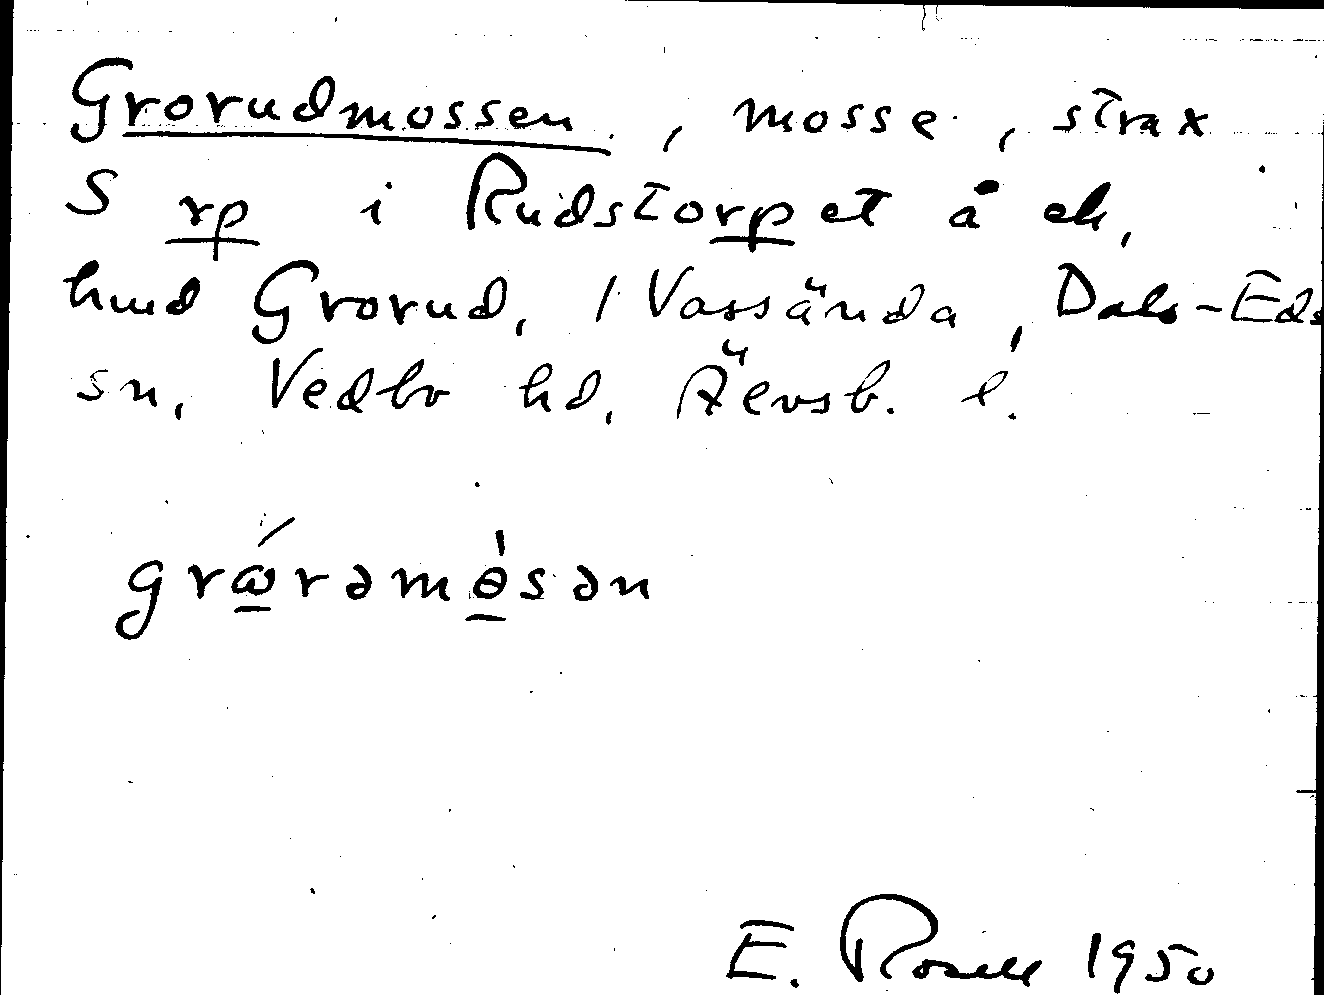 Grorudmossen, mosse, strax
S rp i Rudstorpet å ek,
hmd Grorud, 1 Vassända, Dals-Eds
sn, Vedbo hd, Älvsb. l.
grώ̲rəmɵ̲̀sən
E. Rosell 1950